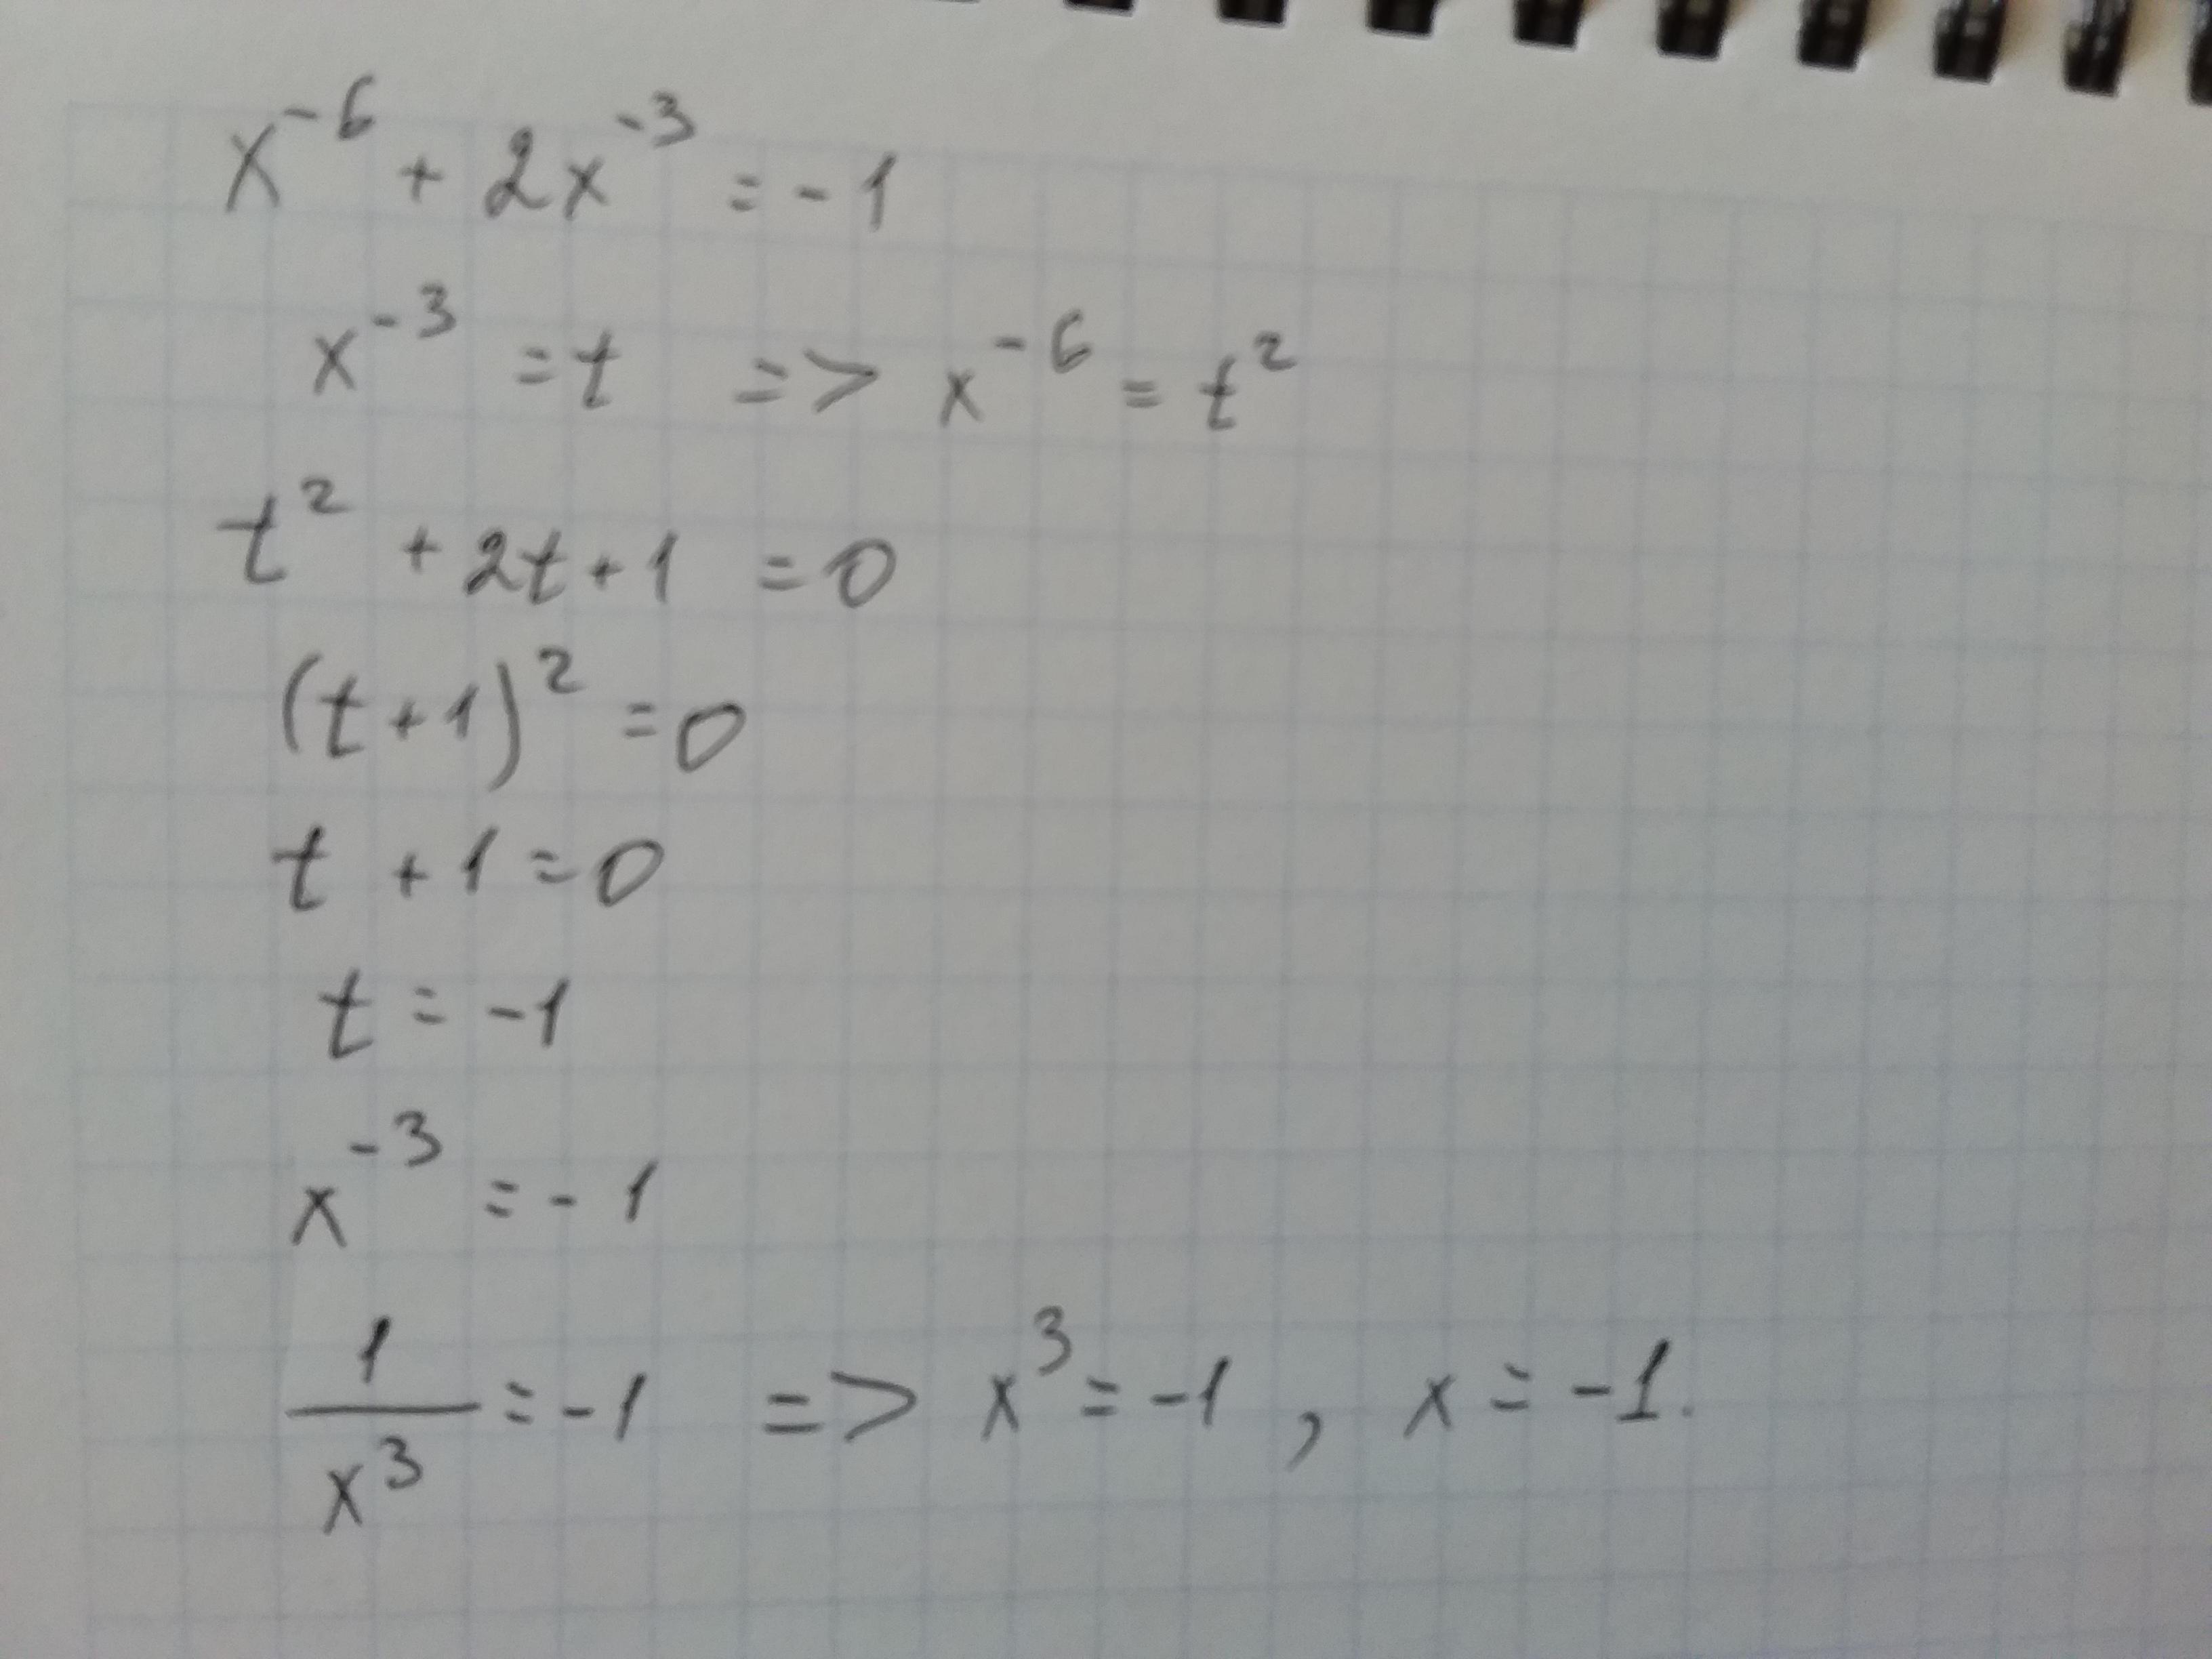 x⁻⁶ + 2x⁻³ = -1
x⁻³ = t => x⁻⁶ = t²
t² + 2t + 1 = 0
(t+1)² = 0
t + 1 = 0
t = -1
x⁻³ = -1
1/x³ = -1 => x³ = -1, x = -1.